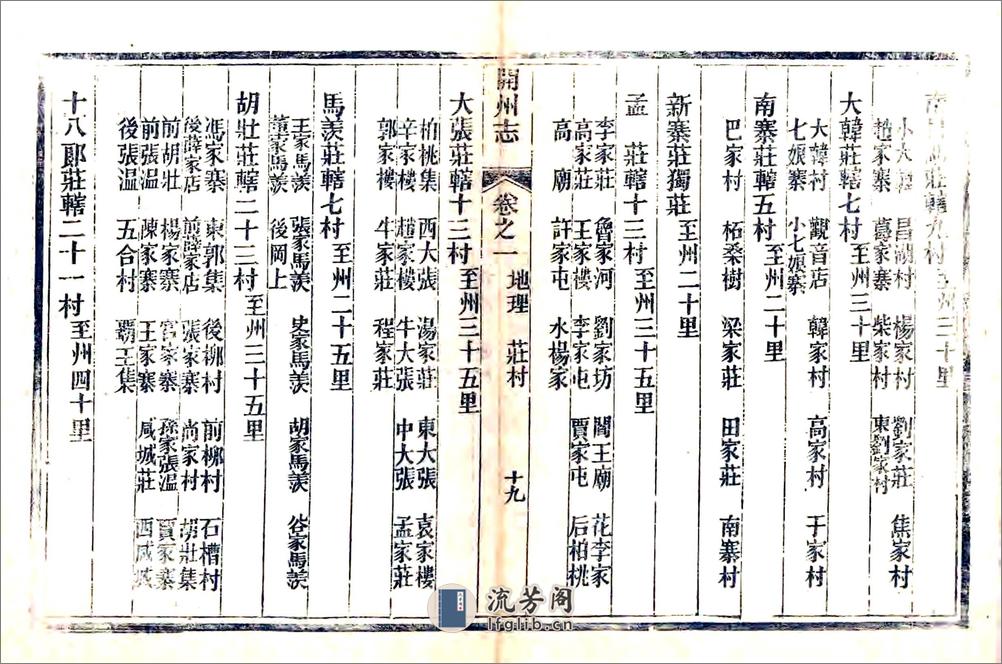 九村至州三十里
小大昌湖村 楊家村 劉家莊 焦家村
趙家寨 葛家寨 柴家村 東劉家村
大韓莊轄七村至州三十里
大韓村 觀音店 韓家村 高家村 于家村
七娘寨 小七娘寨
南寨莊轄五村至州二十里
巴家村 柘桑樹 梁家莊 田家莊 南寨村
新寨莊獨莊至州二十里
孟莊轄十三村至州三十五里
李家莊 魯家河 劉家坊 閻王廟 花李家
高家莊 王家樓 李家屯 賈家屯 后柏桃
高廟 許家屯 水楊家
開州志 卷之一 地理 莊村 十九
大張莊轄十三村至州三十五里
柏桃集 西大張 湯家莊 東大張 袁家樓
辛家樓 趙家樓 牛大張 中大張 孟家莊
郭家樓 牛家莊 程家莊
馬羨莊轄七村至州二十五里
王家馬羨 張家馬羨 史家馬羨 胡家馬羨 谷家馬羨
董家馬羨 後岡上
胡壯莊轄二十三村至州三十五里
馮家寨 東郭集 後柳村 前柳村 石槽村
後薛家店 前薛家店 張家寨 尚家村 胡壯集
前胡壯 楊家寨 宫家寨 孫家張溫 賈家寨
前張溫 陳家寨 王家寨 咸城莊 西咸城
後張溫 五合村 霸王集
十八郎莊轄二十一村至州四十里
流芳阁
lfglib.cn